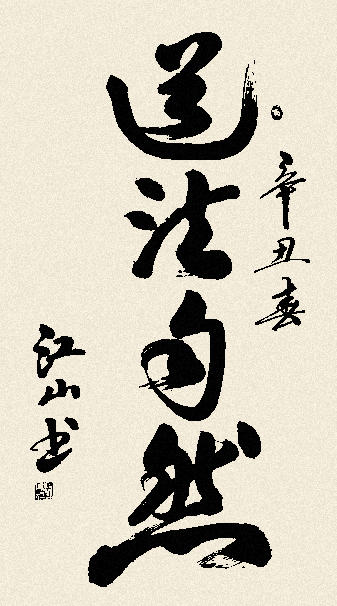 辛丑春
道法自然
江山书